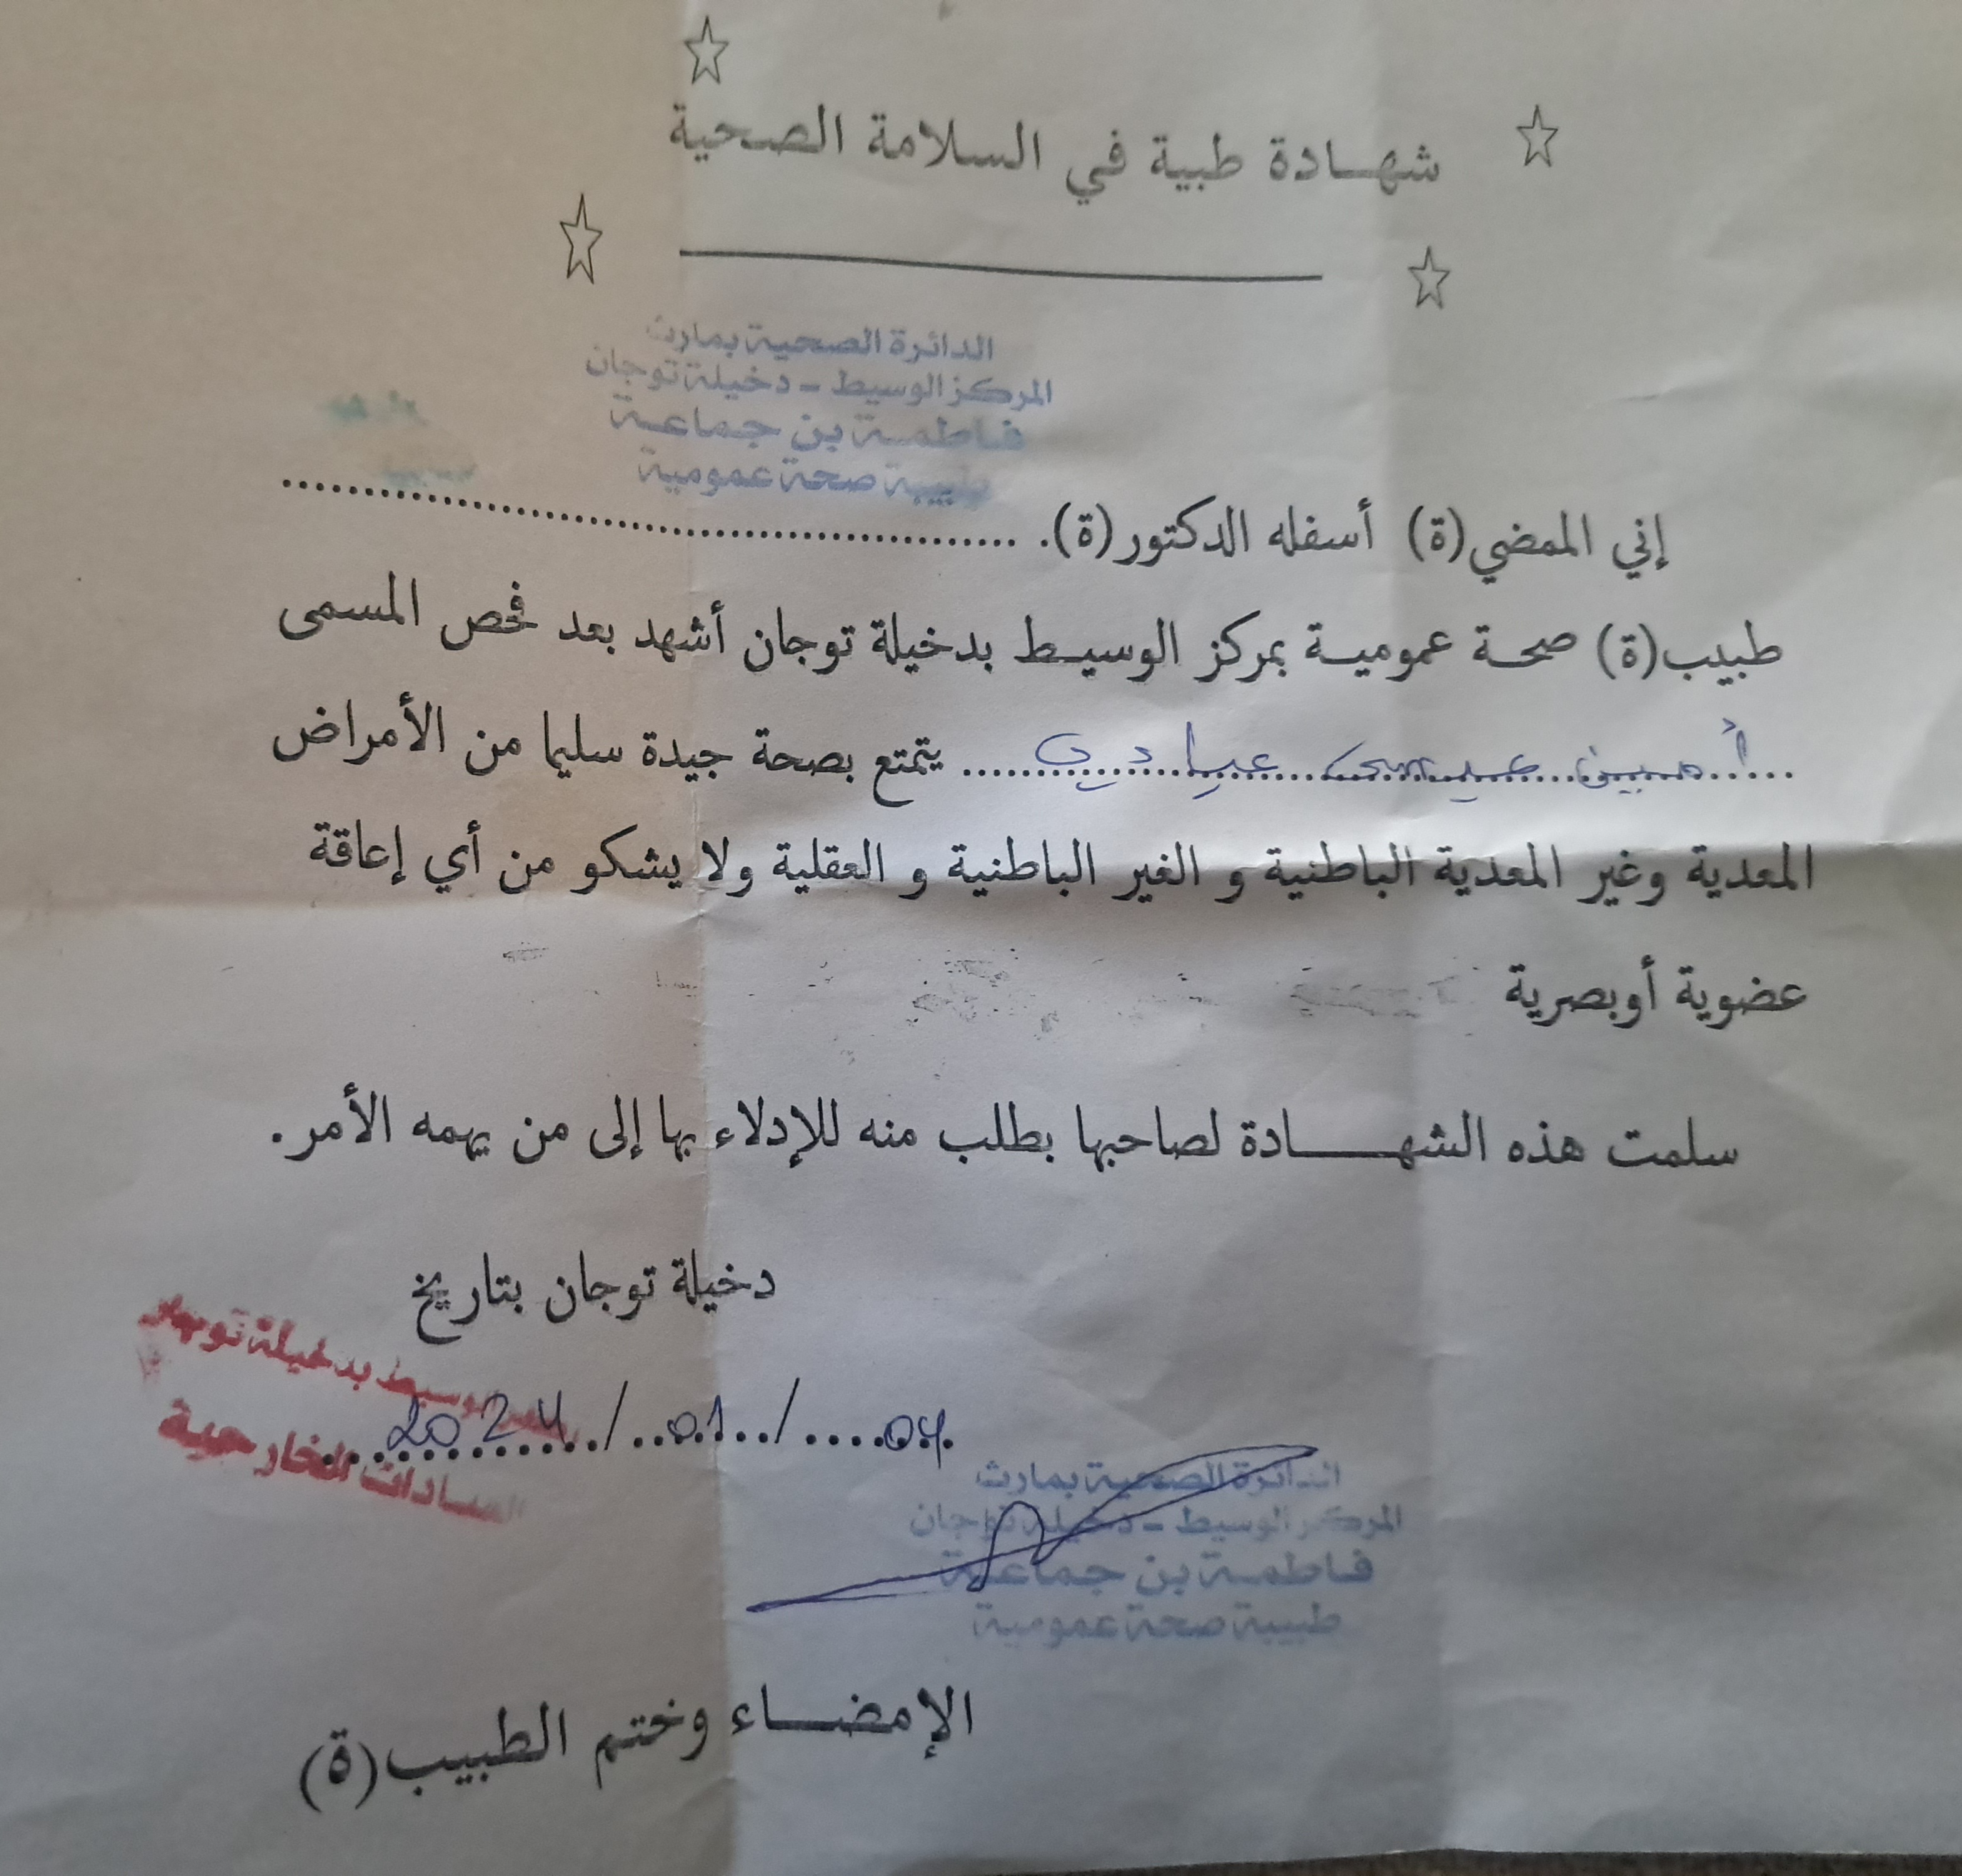 شهادة طبية في السلامة الصحية
الدائرة الصحية بمارث
المركز الوسيط - دخيلة توجان
فاطمة بن جماعة
طبيبة صحة عمومية
إني الممضي(ة) أسفله الدكتور(ة). ....................
طبيب(ة) صحة عمومية بمركز الوسيط بدخيلة توجان أشهد بعد فحص المسمى
أمين عيسى عبادي يتمتع بصحة جيدة سليما من الأمراض
المعدية وغير المعدية الباطنية و الغير الباطنية و العقلية ولا يشكو من أي إعاقة
عضوية أوبصرية
سلمت هذه الشهادة لصاحبها بطلب منه للإدلاء بها إلى من يهمه الأمر.
دخيلة توجان بتاريخ
الوسيط بدخيلة توجان
04/01/2024
الخارجية
الدائرة الصحية بمارث
المركز الوسيط - دخيلة توجان
فاطمة بن جماعة
طبيبة صحة عمومية
الإمضاء وختم الطبيب(ة)